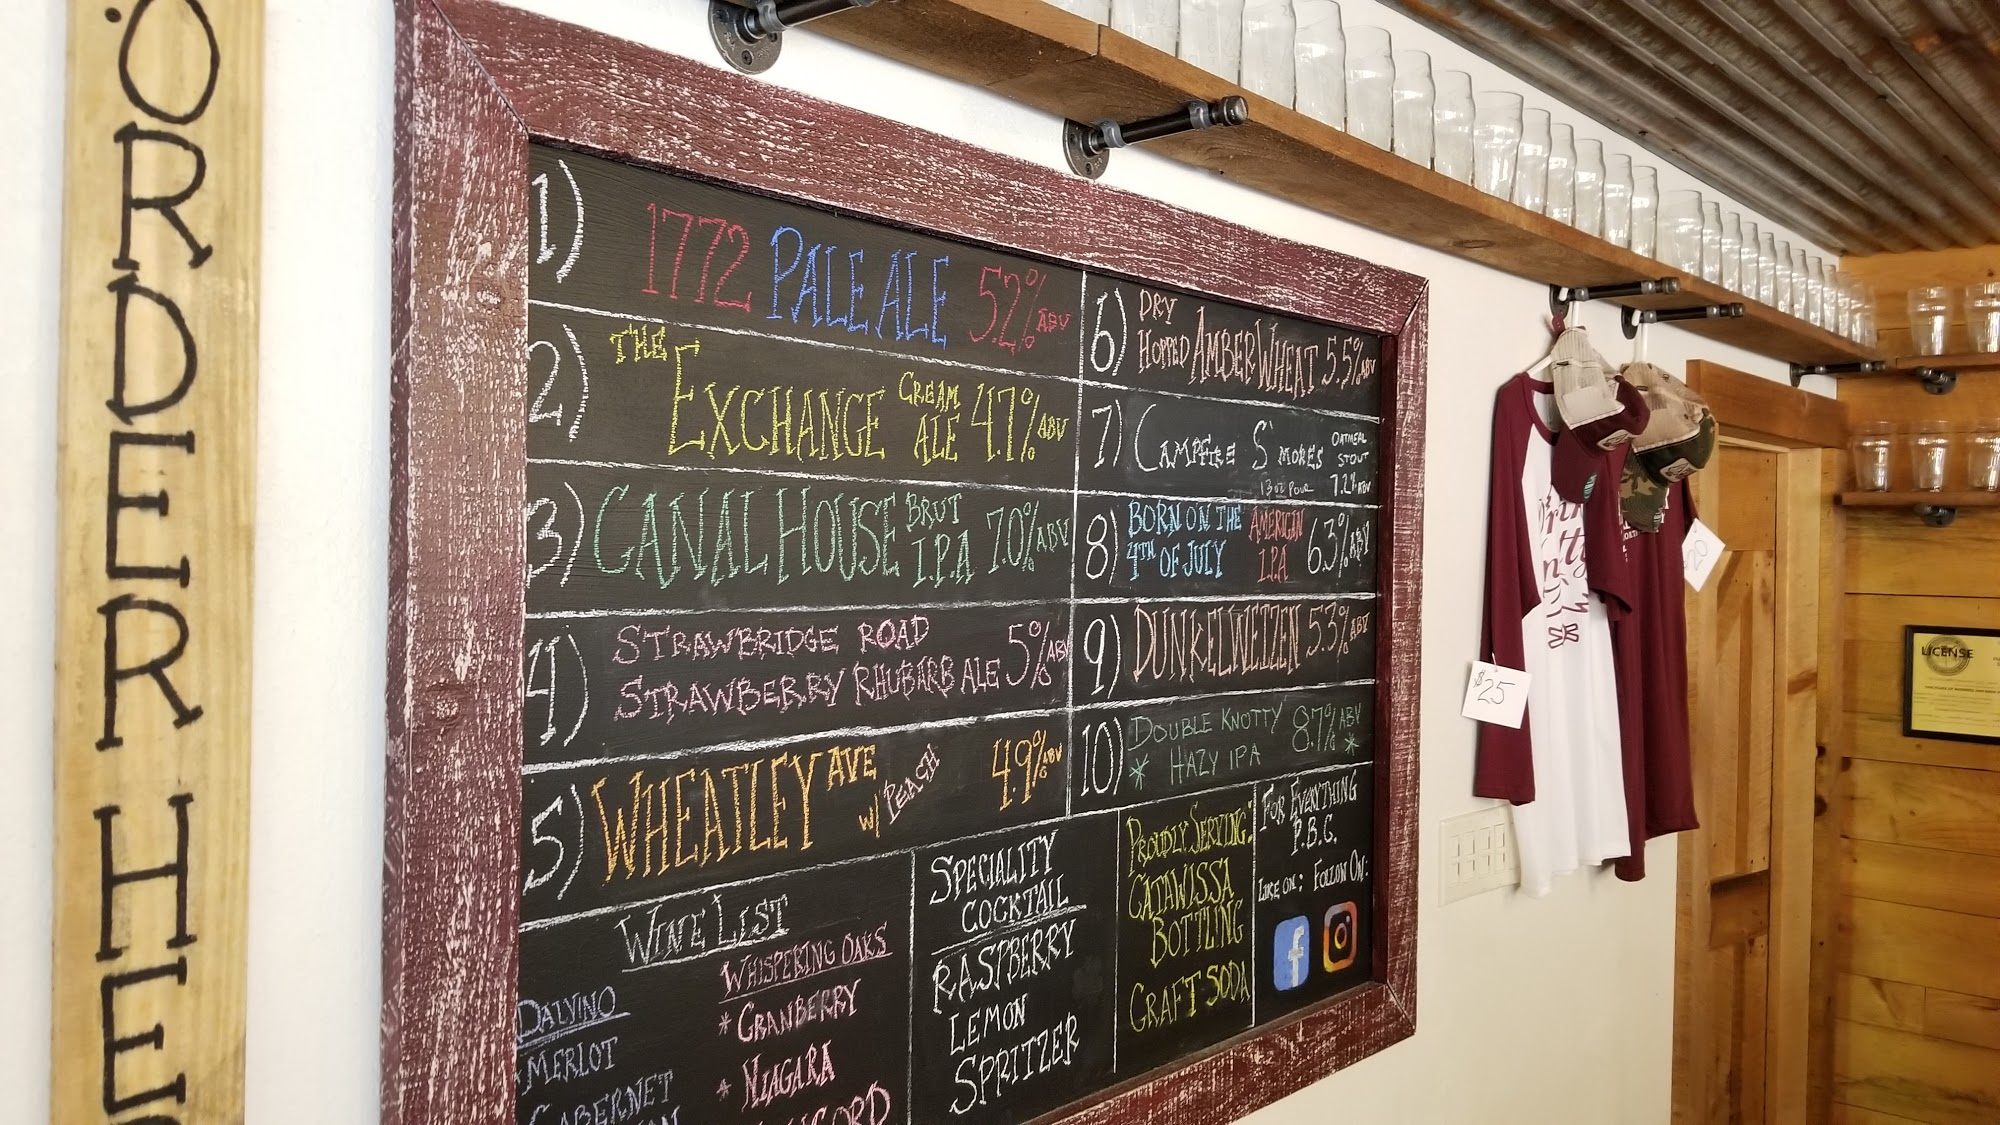 ORDER HE
1) 1772 PALE ALE 5.2% ABV
2) THE EXCHANGE CREAM ALE 4.7% ABV
3) CANAL HOUSE BRUT I.P.A 7.0% ABV
4) STRAWBRIDGE ROAD
STRAWBERRY RHUBARB ALE 5% AB
5) WHEATLEY AVE W/ PEACH 4.9% ABV
6) DRY
HOPPED AMBER WHEAT 5.5% ABV
7) CAMPFIRE S'MORES OATMEAL STOUT
13 OZ POUR 7.2% ABV
8) BORN ON THE
4TH OF JULY AMERICAN I.P.A 6.3% ABV
9) DUNKELWEIZEN 5.3% ABV
10) DOUBLE KNOTTY
* HAZY IPA 8.7% ABV *
WINE LIST
DALVINO
MERLOT
CABERNET
WHISPERING OAKS
* CRANBERRY
* NIAGARA
SPECIALITY
COCKTAIL
RASPBERRY
LEMON
SPRITZER
PROUDLY SERVING:
CATAWISSA
BOTTLING
CRAFT SODA
FOR EVERYTHING
P.B.C.
LIKE ON: FOLLOW ON:
f
$25
$20
LICENSE